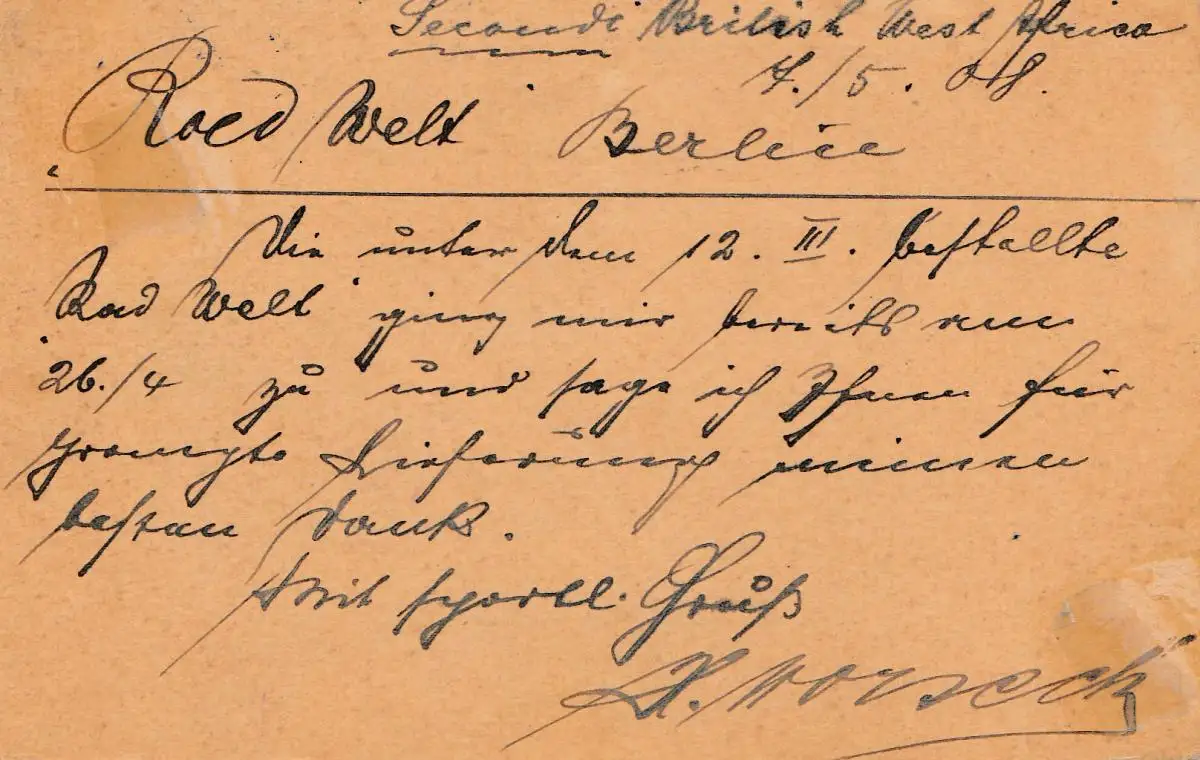 Secondi British West Africa
7./5. 08.
"Rad Welt" Berlin
Die unter dem 12. III. bestellte
"Rad Welt" ging mir bereits am
26./4 zu und sage ich Ihnen für
prompte Lieferung meinen
besten Dank.
Mit sportl. Gruß